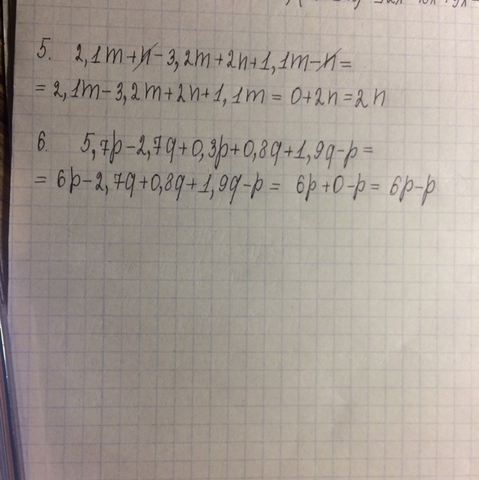 5. 2,1m+n-3,2m+2n+1,1m-n=
= 2,1m-3,2m+2n+1,1m = 0+2n=2n
6. 5,7p-2,7q+0,3p+0,8q+1,9q-p=
= 6p-2,7q+0,8q+1,9q-p= 6p+0-p= 6p-p